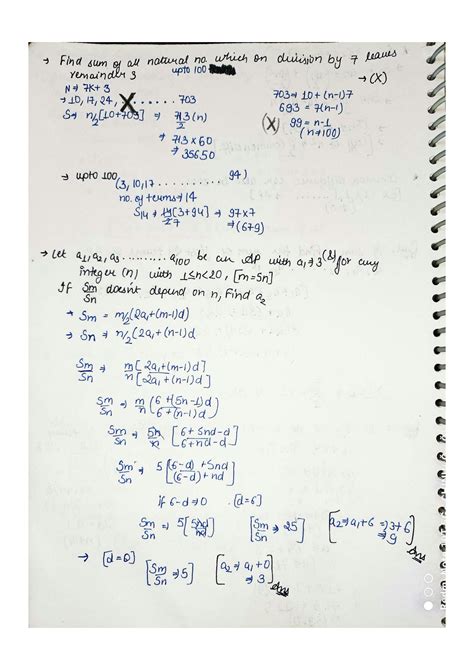 → Find sum of all natural no. which on division by 7 leaves
remainder 3 upto 100 → (X)
N ⇒ 7K+3
→ 10, 17, 24, X ...... 703
703 ⇒ 10+(n-1)7
S ⇒ n/2[10+703] ⇒ 713(n)/2
693 = 7(n-1)
⇒ 713 x 60
(X) 99 = n-1
⇒ 35650
(n ⇒ 100)
→ upto 100, (3, 10, 17 .......... 94)
no. of terms ⇒ 14
S14 ⇒ 14/2[3+94] ⇒ 97x7
7 ⇒ (679)
→ Let a1, a2, a3 ......... a100 be an AP with a1 ⇒ 3 (&) for any
integer (n) with 1≤n<20, [m=5n]
If Sm/Sn doesn't depend on n, Find a2
→ Sm = m/2(2a1+(m-1)d
→ Sn ⇒ n/2(2a1+(n-1)d
Sm/Sn ⇒ m[2a1+(m-1)d]/n[2a1+(n-1)d]
Sm/Sn ⇒ m/n (6+(5n-1)d/6+(n-1)d)
Sm/Sn ⇒ 5n/n [6+5nd-d/6+nd-d]
Sm/Sn ⇒ 5[(6-d)+5nd/(6-d)+nd]
if 6-d ⇒ 0 [d=6]
Sm/Sn ⇒ 5[5nd/nd] [Sm/Sn ⇒ 25] [a2 ⇒ a1+6 ⇒ 3+6
⇒ 9] Ans
→ [d=0] [Sm/Sn ⇒ 5] [a2 ⇒ a1+0
⇒ 3] Ans